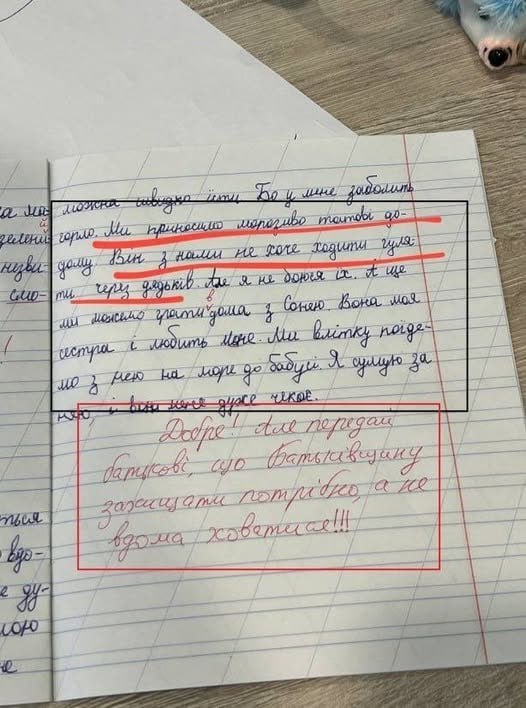 ка ма
зелений
незви
смо-
!
ться
вдо-
е ду-
мою
не
можна швидко їсти Бо у мене заболить
горло. Ми приносимо морозиво татові до-
дому. Він з нами не хоче ходити гуля-
ти через дядьків. Але я не боюся їх. А ще
ми можемо грати в дома з Сонею. Вона моя
сестра і любить мене. Ми влітку поїде-
мо з нею на море до бабусі. Я сумую за
нею, і вона мене дуже чекає.
Добре! Але передай
батькові, що Батьківщину
захищати потрібно, а не
вдома ховатися!!!